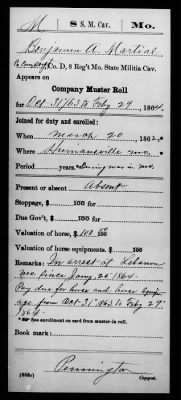 M 8 S. M. Cav. Mo.
Benjamin A. Martial
Co. D, 8 Reg't Mo. State Militia Cav.
Appears on
Company Muster Roll
for Oct 31/63 to Feby 29, 1864.
Joined for duty and enrolled:
When March 20, 1862.
Where Humansville Mo.
Period During war in Mo.
Present or absent Absent
Stoppage, $ 100 for
Due Gov't, $ 100 for
Valuation of horse, $ 100.00 100
Valuation of horse equipments, $ 100
Remarks: In arrest at Lebanon
Mo. since Jany 25 1864.
Pay due for horse and horse equip
age from Oct 31" 1863 to Feby 29"
1864
*See enrollment on card from muster-in roll.
Book mark:
Pennington
(858c) Copyist.